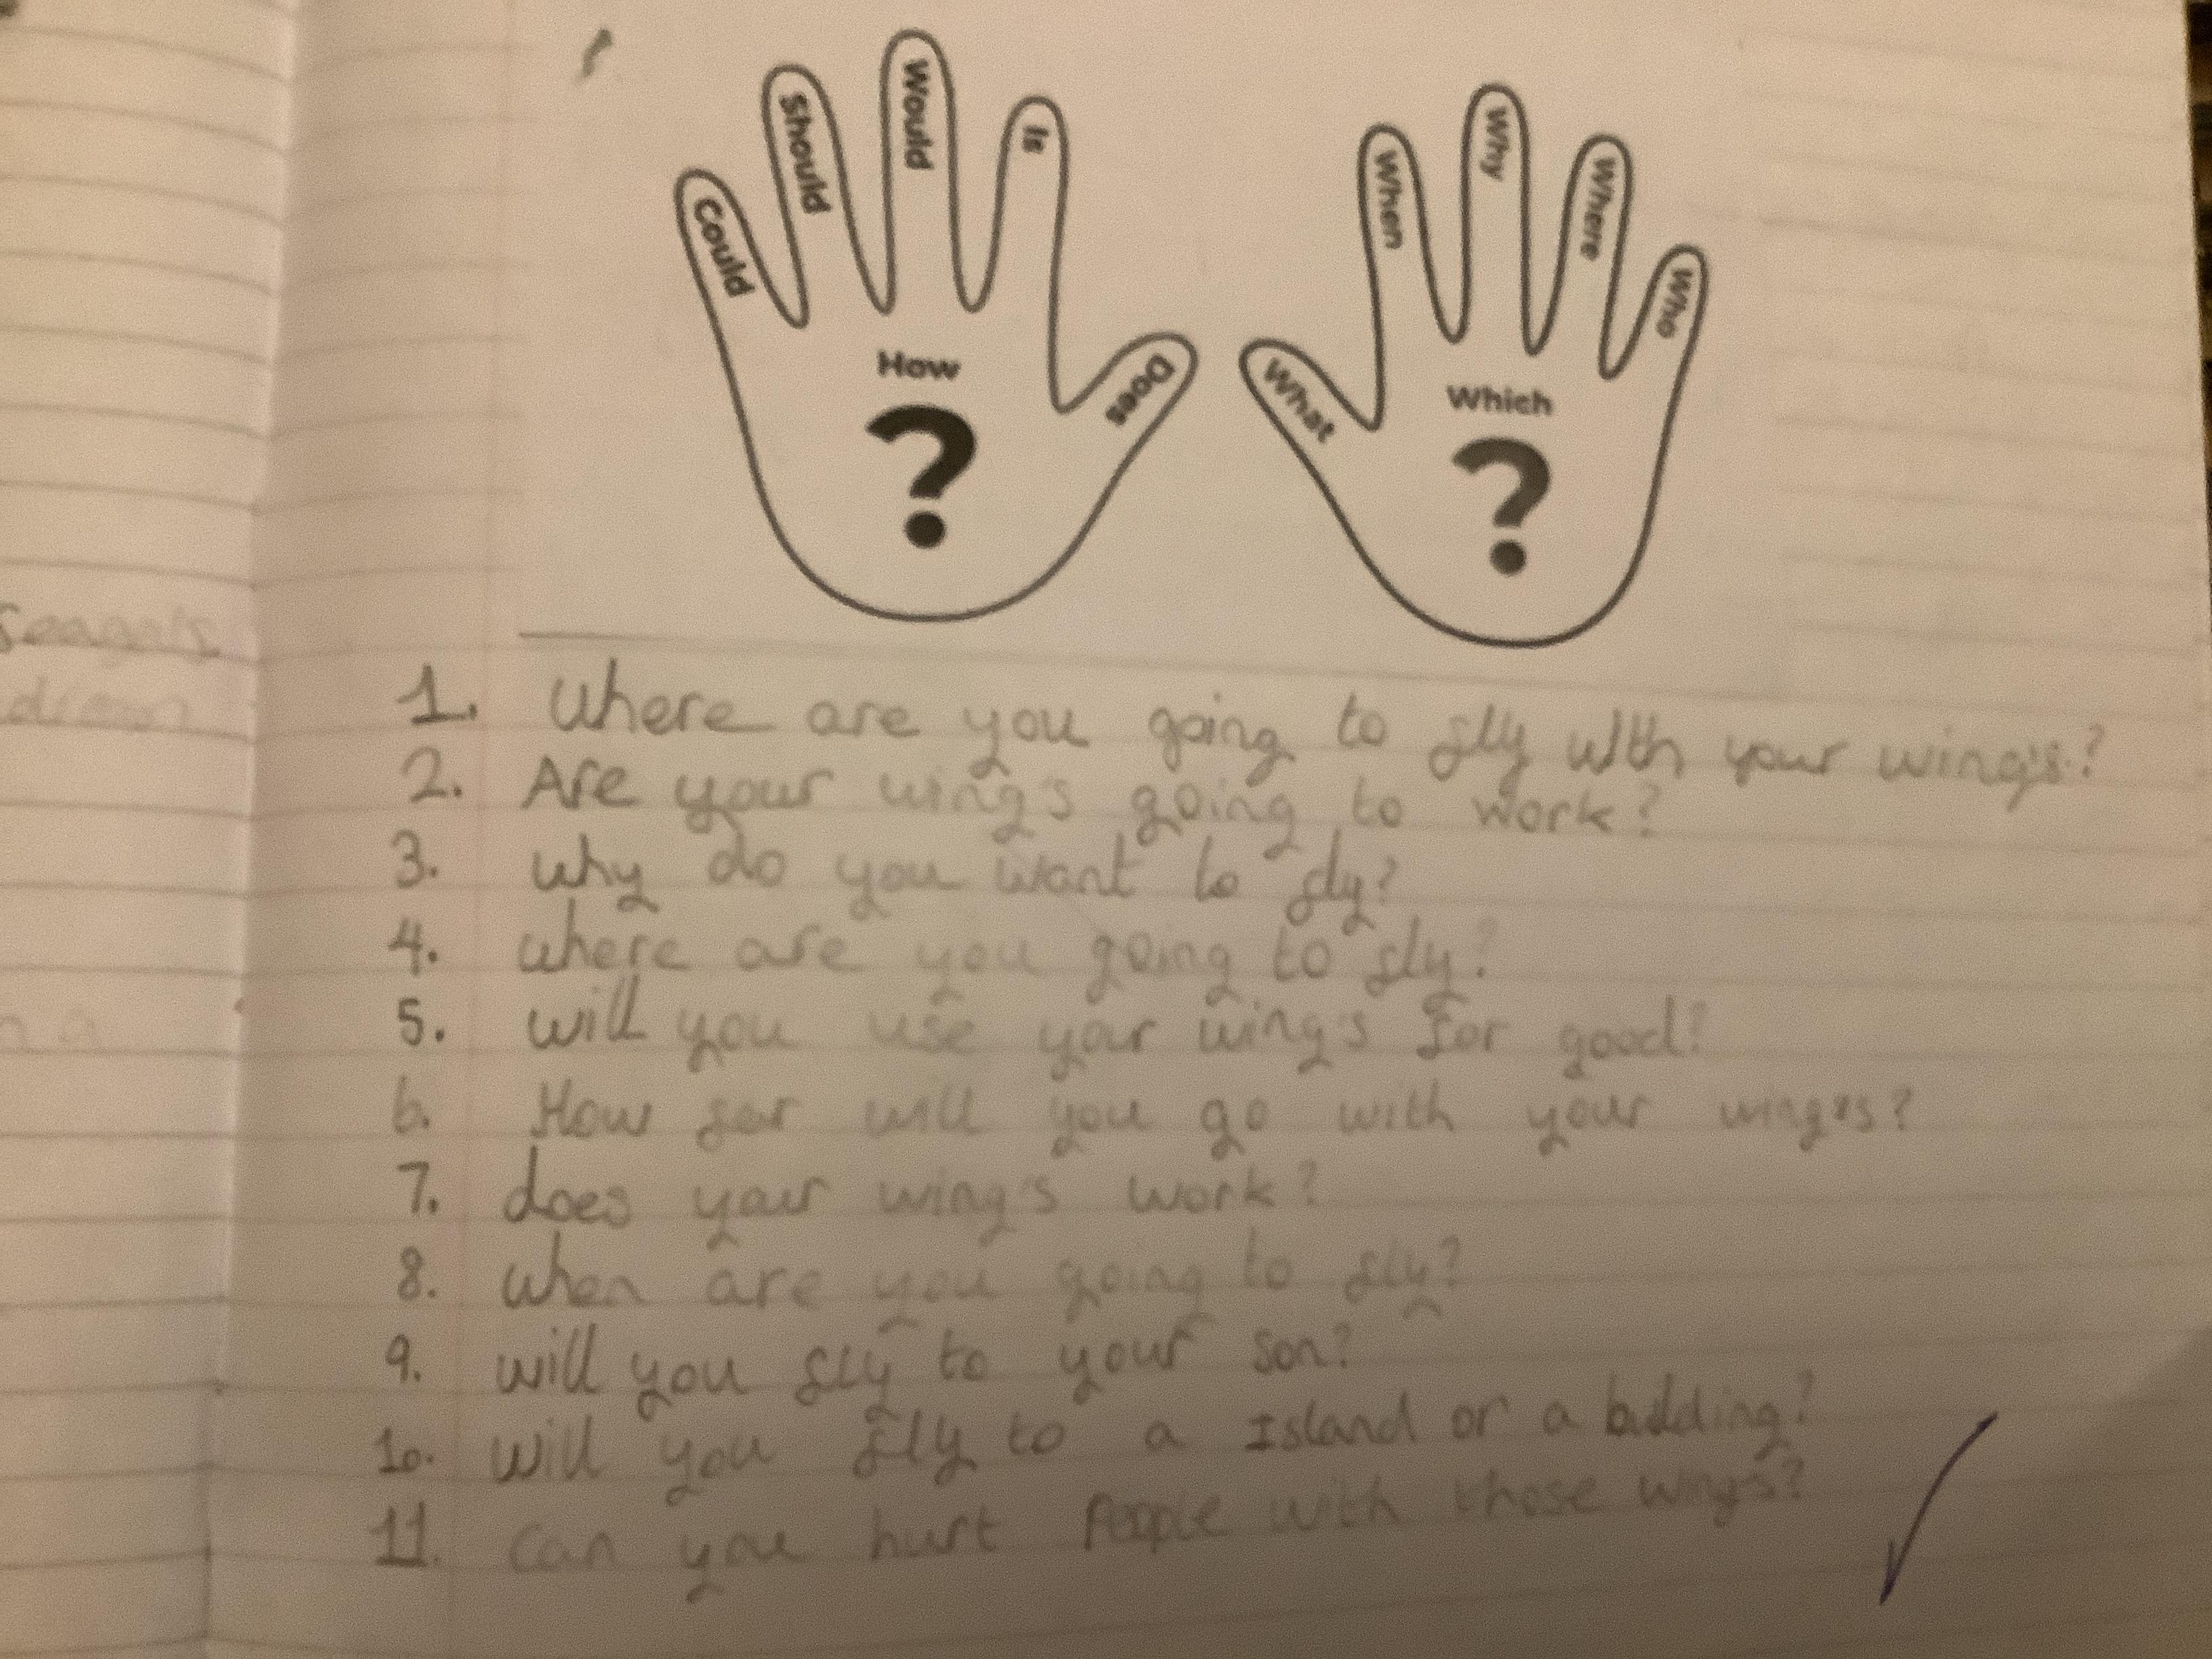 Could
Should
Would
Is
Does
How
?
What
When
Why
Where
Who
Which
?
Seagals
n a
1. Where are you going to fly with your wing's?
2. Are your wing's going to work?
3. why do you want to fly?
4. where are you going to fly?
5. will you use your wing's for good?
6. How far will you go with your wing's?
7. does your wing's work?
8. when are you going to fly?
9. will you fly to your son?
10. will you fly to a Island or a building?
11. can you hurt People with those wing's?